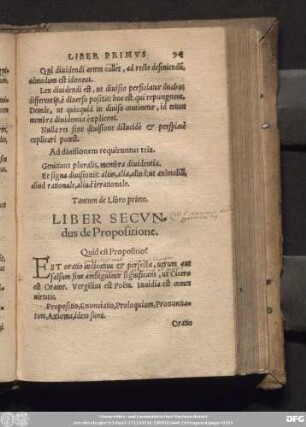 LIBER PRIMVS 94
Qui diuidendi artem callet, ad recte definiendũ,
admodum est idoneus.
Lex diuidendi est, ut diuisio perficiatur duabus
differentijs, è diuerso positis: hoc est, qui repugnent,
Deinde, ut quicquid in diuiso continetur, id unum
membra diuidentia explicent.
Nulla res sine diuisione dilucidè & perspicuè
explicari potest.
Ad diuisionem requiruntur tria.
Genitiuus pluralis, membra diuidentia.
Et signa diuisionis: alius, alia, aliud: ut animaliũ,
aliud rationale, aliud irrationale.
Tantum de Libro primo.
LIBER SECVN,
dus de Propositione.
Quid est Propositio?
EST oratio & perfecta, uerum aut
falsum sine ambiguitate significans, ut Cicero
est Orator. Vergilius est Poëta. Inuidia est comes
uirtutis.
Propositio, Enunciatio, Proloquium, Pronuntia-
tum, Axioma, idem sunt.
Oratio